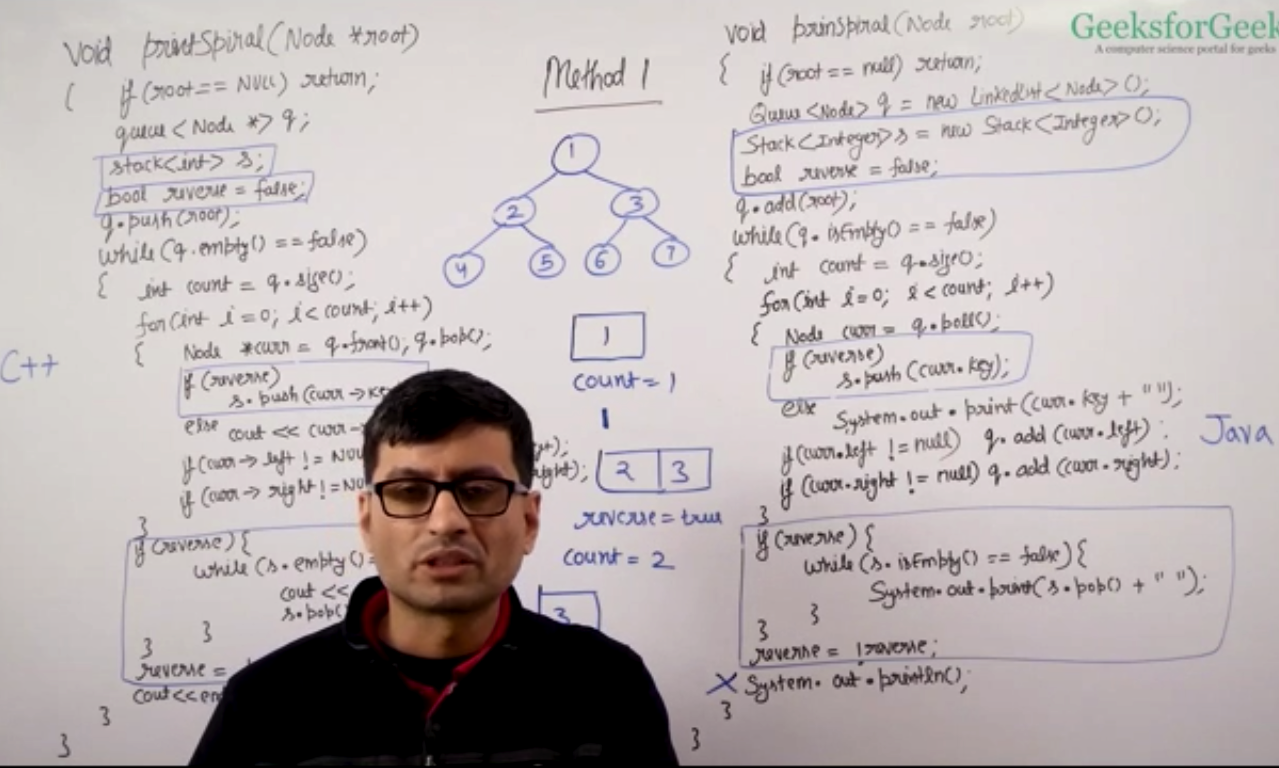 void printSpiral(Node *root)
{ if(root == NULL) return;
queue<Node *> q;
stack<int> s;
bool reverse = false;
q.push(root);
while(q.empty() == false)
{ int count = q.size();
for(int i=0; i<count; i++)
{ Node *curr = q.front(); q.pop();
if(reverse)
s.push(curr->
else cout << curr->
if(curr->left !=
if(curr->right !=
right);
}
if(reverse){
while(s.empty()
cout <<
s.pop(
}
}
reverse =
cout<<
}
}
C++
Method 1
1
2 3
4 5 6 7
1
count = 1
1
2 3
reverse = true
count = 2
3
GeeksforGeek
A computer science portal for geeks
void prinSpiral(Node root)
{ if(root == null) return;
Queue<Node> q = new LinkedList<Node>();
Stack<Integer> s = new Stack<Integer>();
bool reverse = false;
q.add(root);
while(q.isEmpty() == false)
{ int count = q.size();
for(int i=0; i<count; i++)
{ Node curr = q.poll();
if(reverse)
s.push(curr.key);
else System.out.print(curr.key + " ");
if(curr.left != null) q.add(curr.left);
if(curr.right != null) q.add(curr.right);
}
if(reverse){
while(s.isEmpty() == false){
System.out.print(s.pop() + " ");
}
}
reverse = !reverse;
X System.out.println();
}
}
Java